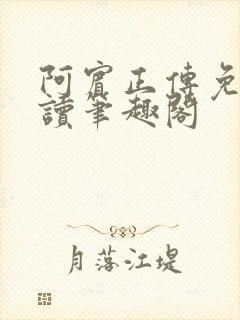 阿賓正傳免
讀筆趣閣
月落江堤